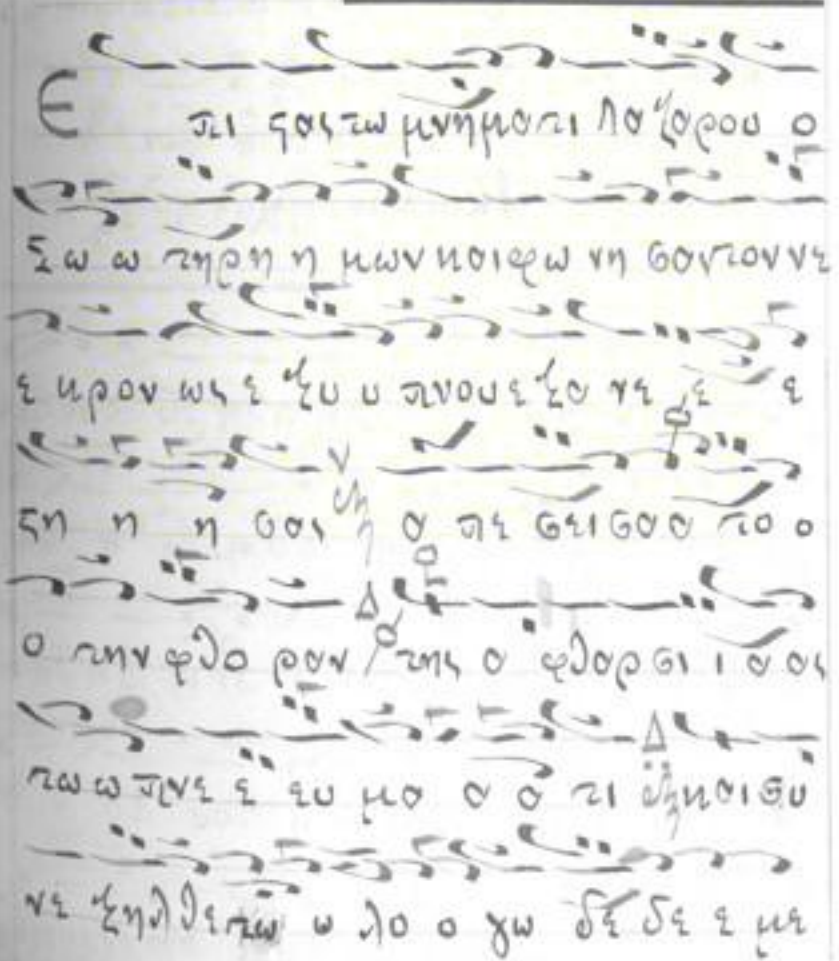 Ε πι ϛας τω μνηματι Λαζαρου ο
Σω ω τηρ η η μων και φω νη σας τον νε
ε κρον ως ε ξυ υ πνου ε ξα νε ε ε
ϛη η η σας α πε σεισα α το ο
ο την φθο ραν της α φθαρσι ι α ας
τω ω πνε ε ευ μα α α τι και συ
νε ξηλθε τω ω λο ο γω δε δε ε με